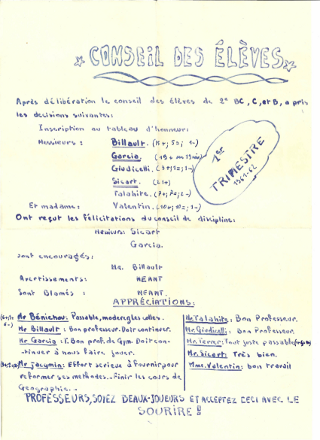 CONSEIL DES ÉLÈVES
Après délibération le conseil des élèves de 2e BC, C, et B, a pris
les decisions suivantes:
Inscription au tableau d'honneur:
Messieurs: Billault.
Garcia.
Giudicelli.
Sicart.
Talahite.
Et madame: Valentin.
1er
TRIMESTRE
1961-62
Ont reçut les félicitations du conseil de discipline:
Messieurs Sicart
Garcia.
Sont encouragés:
Mr. Billault
Avertissements: NEANT
Sont Blamés: NEANT.
APPRÉCIATIONS:
Mr Bénichou: Passable, modere
Mr Billault: Bon professeur. Doit continuer.
Mr Garcia: Bon prof. de Gym. Doit con-
-tinuer à nous faire jouer.
Mr Jacquin: Effort serieux à fournir pour
reformer ses methodes.. Finir les cours de
Geographie..
Mr. Talahite: Bon Professeur.
Mr. Giudicelli: Bon Professeur.
Tout juste passable
Mr. Sicart: Très bien.
Mme. Valentin: bon travail
PROFESSEURS, SOYEZ BEAUX-JOUEURS ET ACCEPTEZ CECI AVEC LE
SOURIRE!